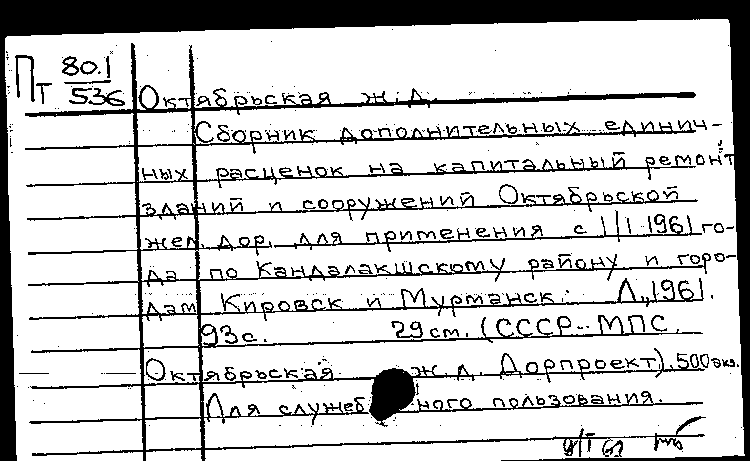 Пт 80.1
536
Октябрьская ж.д.
Сборник дополнительных единич-
ных расценок на капитальный ремонт
зданий и сооружений Октябрьской
жел. дор. для применения с 1/I 1961 го-
да по Кандалакшскому району и горо-
дам Кировск и Мурманск. Л., 1961.
93с. 29 см. (СССР. МПС.
Октябрьская ж.д. Дорпроект). 500 экз.
Для служебного пользования.